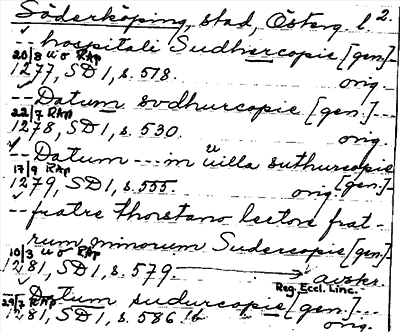 Söderköping, stad, Österg. l. 2.
-- hospitali Sudhercopie [gen.]
20/8 u o RAp
1277, SD 1, s. 518. orig.
-- Datum sudhurcopie [gen.] --
22/7 RAp
1278, SD 1, s. 530. orig.
-- Datum --- in uilla suthurcopie [gen.]
17/9 RAp
1279, SD 1, s. 555. orig.
-- fratre thorstano lectore frat-
rum minorum Sudercopie [gen.]
10/3 u o RAp
1281, SD 1, s. 579. avskr.
Reg. Eccl. Linc.
-- Datum sudurcopie [gen.] --
29/7 RAp
1281, SD 1, s. 586 orig.